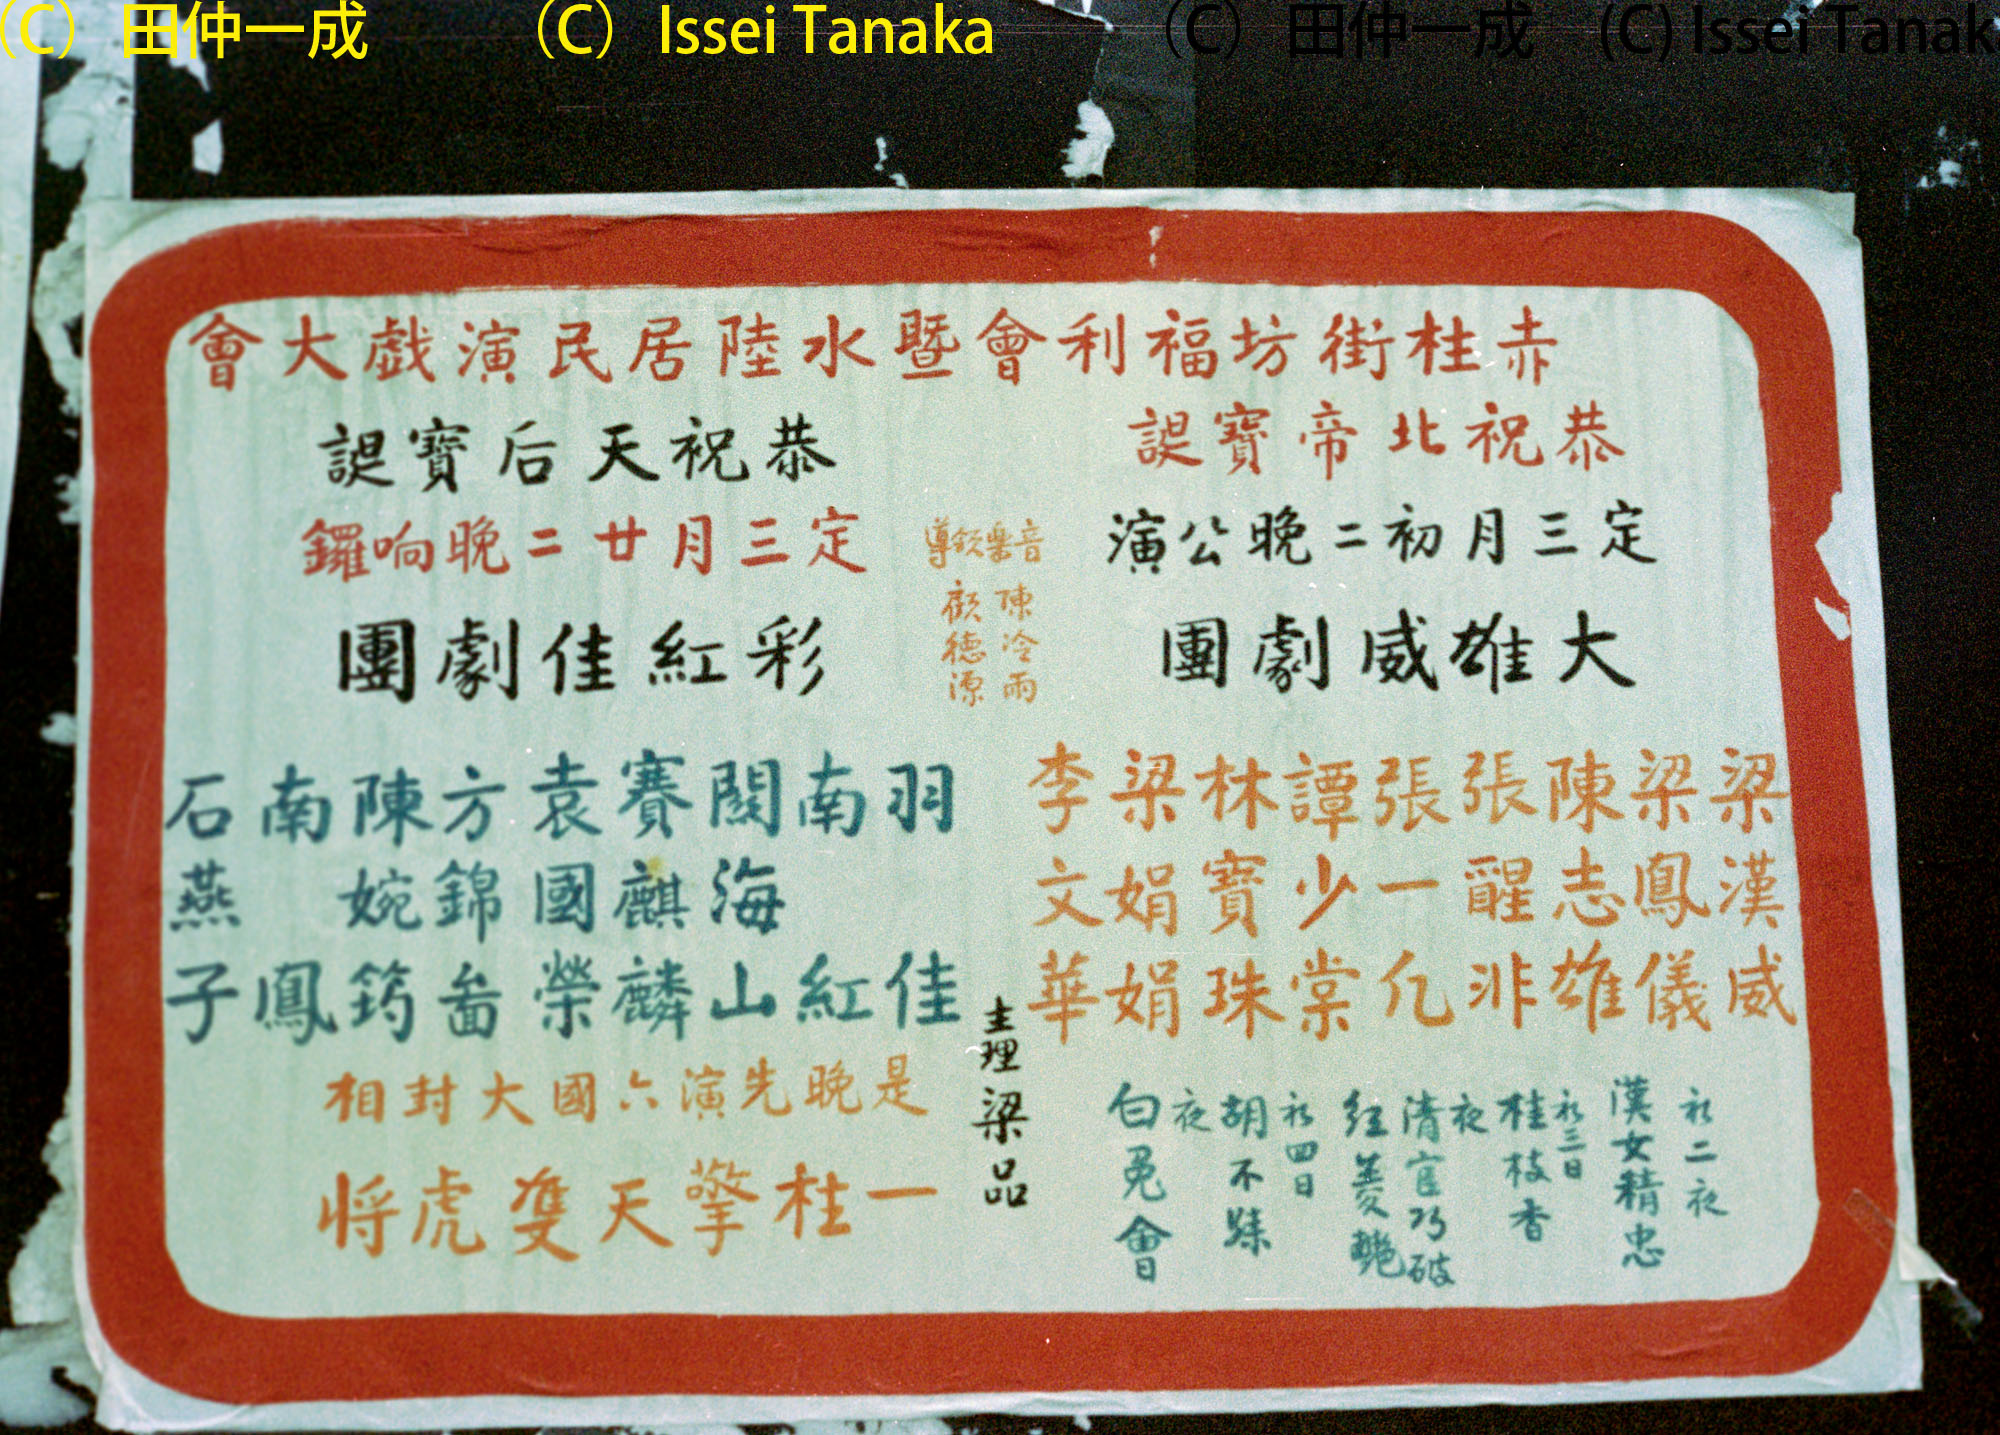 (C) 田仲一成 (C) Issei Tanaka (C) 田仲一成 (C) Issei Tanak
赤柱街坊福利會暨水陸居民演戲大會
恭祝北帝寶誕
定三月初二晚公演
大雄威劇團
梁漢威
梁鳳儀
陳志雄
張醒非
張一凡
譚少棠
林寶珠
梁娟娟
李文華
初二夜
漢女精忠
初三日
桂枝香
夜
清官巧破
紅菱艷
初四日
胡不歸
夜
白兔會
音樂領導
陳冷雨
顧德源
主理梁品
恭祝天后寶誕
定三月廿二晚响鑼
彩紅佳劇團
羽佳
南紅
關海山
賽麒麟
袁國榮
方錦畚
陳婉筠
南鳳
石燕子
是晚先演六國大封相
一柱擎天雙虎将